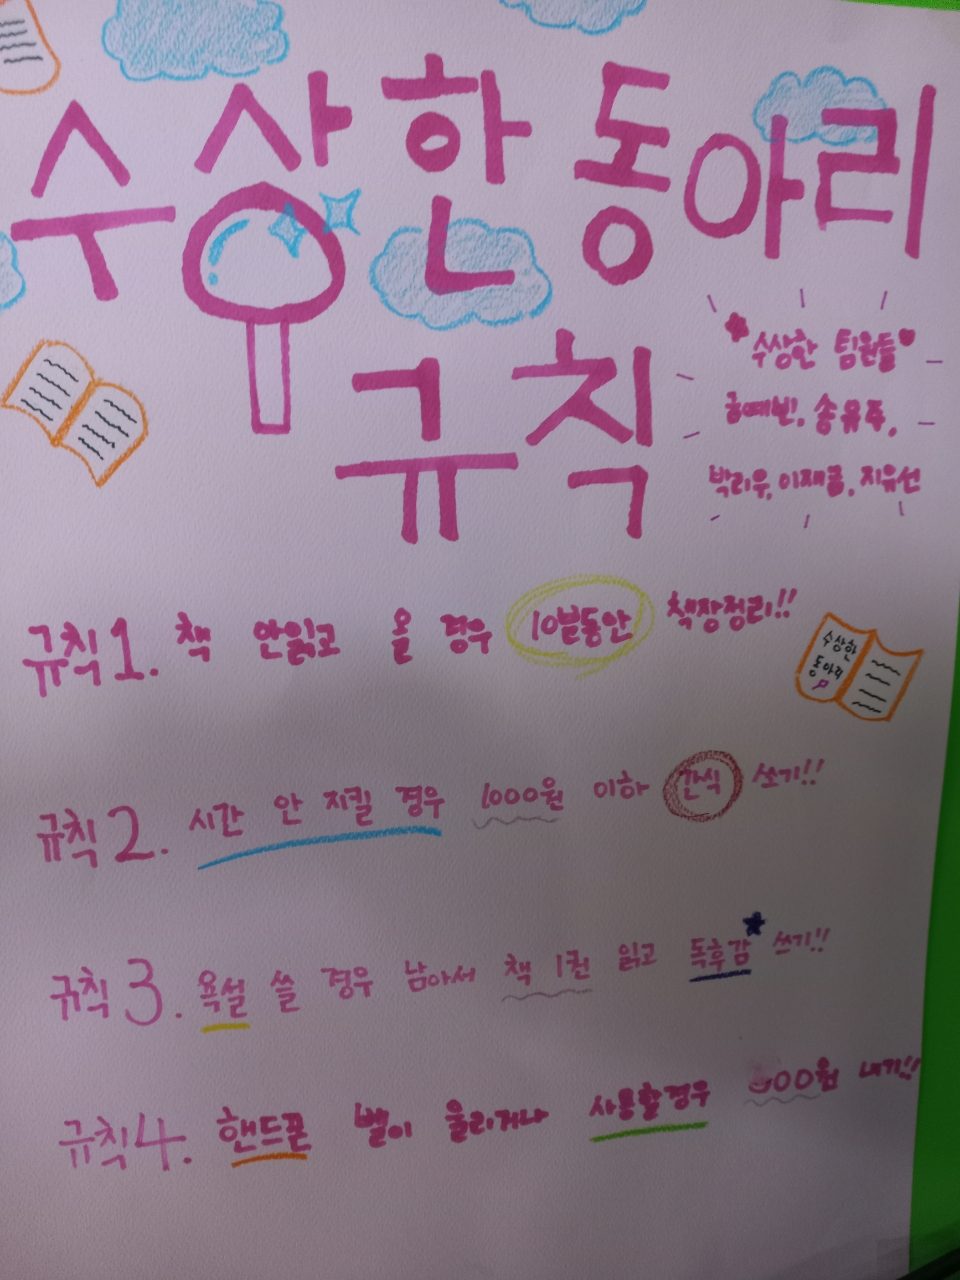 수상한 동아리
규칙
수상한 팀원들
금예빈, 송유주,
박리우, 이재룸, 지유선
규칙1. 책 안읽고 올 경우 10분동안 책장정리!!
수상한
동아리
규칙2. 시간 안 지킬 경우 1000원 이하 간식 쏘기!!
규칙3. 욕설 쓸 경우 남아서 책 1권 읽고 독후감 쓰기!!
규칙4. 핸드폰 벨이 울리거나 사용할경우 500원 내기!!